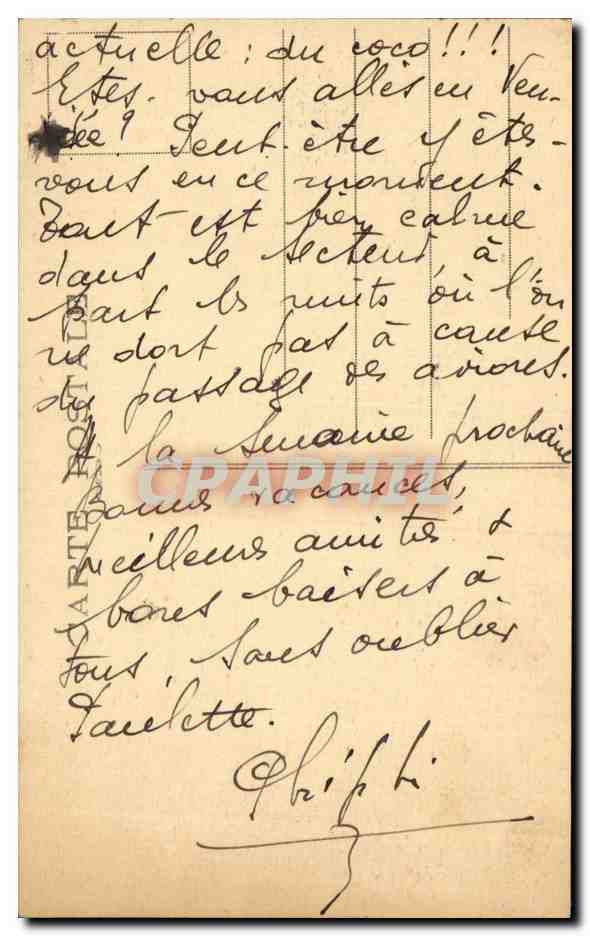 actuelle : du coco!!!
Etes-vous allés en Ven-
dée? Peut-être y êtes-
vous en ce moment.
Tout est bien calme
dans le secteur, à
part les nuits où l'on
ne dort pas à cause
du passage des avions.
A la semaine prochaine
Bonnes vacances,
meilleures amitiés &
bons baisers à
tous, sans oublier
Paulette.
CARTE POSTALE
CPAPHIL